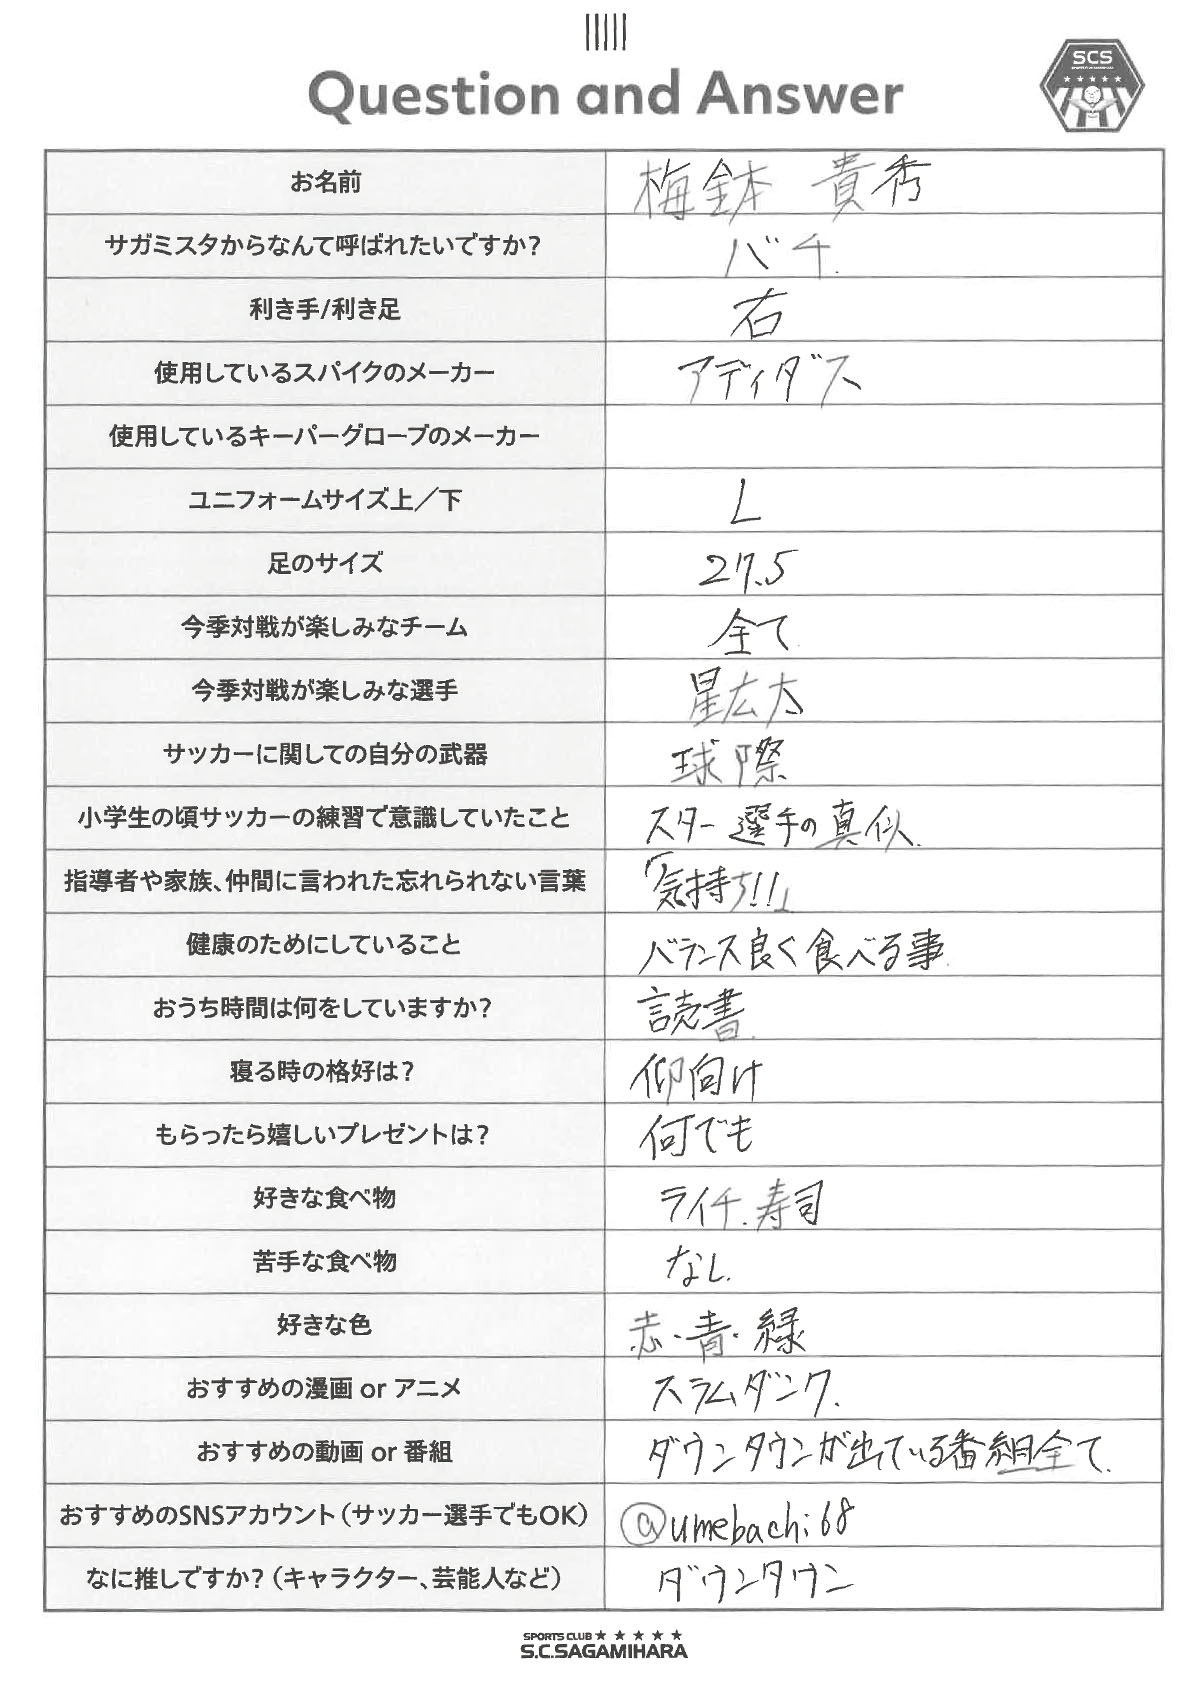 Question and Answer
SCS
お名前 梅鉢 貴秀
サガミスタからなんて呼ばれたいですか? バチ.
利き手/利き足 右
使用しているスパイクのメーカー アディダス
使用しているキーパーグローブのメーカー
ユニフォームサイズ上/下 L
足のサイズ 27.5
今季対戦が楽しみなチーム 全て
今季対戦が楽しみな選手 星広太
サッカーに関しての自分の武器 球際
小学生の頃サッカーの練習で意識していたこと スター選手の真似.
指導者や家族、仲間に言われた忘れられない言葉 「気持ち!!」
健康のためにしていること バランス良く食べる事.
おうち時間は何をしていますか? 読書.
寝る時の格好は? 仰向け
もらったら嬉しいプレゼントは? 何でも
好きな食べ物 ライチ.寿司
苦手な食べ物 なし.
好きな色 赤・青・緑
おすすめの漫画 or アニメ スラムダンク.
おすすめの動画 or 番組 ダウンタウンが出ている番組全て.
おすすめのSNSアカウント(サッカー選手でもOK) @umebachi68
なに推しですか?(キャラクター、芸能人など) ダウンタウン
SPORTS CLUB ★ ★ ★ ★ ★
S.C.SAGAMIHARA